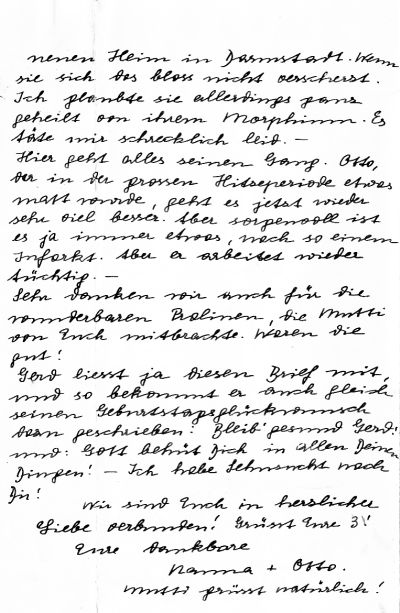 neuen Heim in Darmstadt. Wenn
sie sich das bloss nicht verscherzt.
Ich glaubte sie allerdings ganz
geheilt von ihrem Morphium. Es
täte mir schrecklich leid. —
Hier geht alles seinen Gang. Otto,
der in der grossen Hitzeperiode etwas
matt wurde, geht es jetzt wieder
sehr viel besser. Aber sorgenvoll ist
es ja immer etwas, nach so einem
Infarkt. Aber er arbeitet wieder
tüchtig. —
Sehr danken wir auch für die
wunderbaren Pralinen, die Mutti
von Euch mitbrachte. Waren die
gut!
Gerd liesst ja diesen Brief mit,
und so bekommt er auch gleich
seinen Geburtstagsglückwunsch
dran geschrieben: Bleib' gesund Gerd!
und: Gott behüt Dich in allen Deinen
Dingen! — Ich habe Sehnsucht nach
Dir!
Wir sind Euch in herzlicher
Liebe verbunden! Grüsst Eure 3!
Eure dankbare
Hanna + Otto.
Mutti grüsst natürlich!